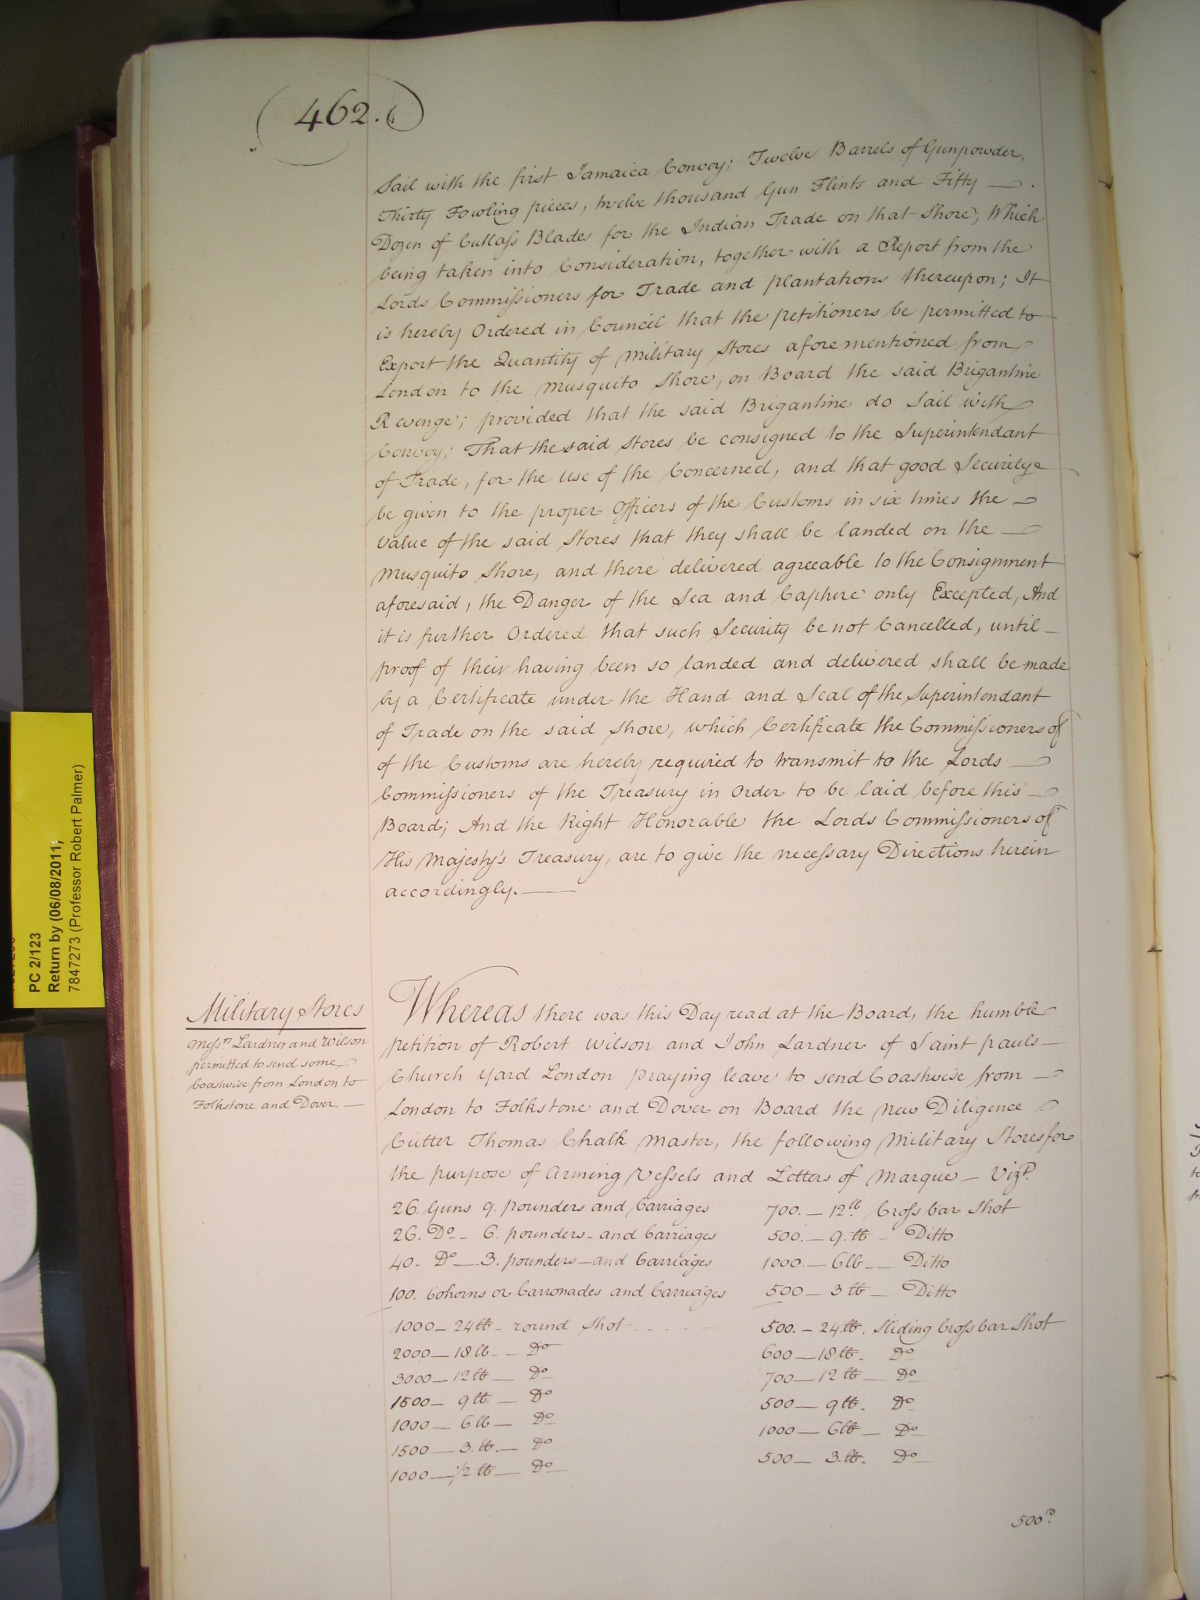 462.
Sail with the first Jamaica Convoy; Twelve Barrels of Gunpowder,
Thirty Fowling pieces, twelve thousand Gun Flints and Fifty —
Dozen of Cutlass Blades for the Indian Trade on that Shore, Which
being taken into Consideration, together with a Report from the
Lords Commissioners for Trade and plantations thereupon; It
is hereby Ordered in Council that the petitioners be permitted to
Export the Quantity of Military Stores aforementioned from
London to the Musquito Shore, on Board the said Brigantine
Revenge; provided that the said Brigantine do Sail with
Convoy; That the said Stores be consigned to the Superintendant
of Trade, for the use of the Concerned, and that good Security
be given to the proper Officers of the Customs in six times the —
value of the said Stores that they shall be landed on the —
Musquito Shore, and there delivered agreeable to the Consignment
aforesaid, the Danger of the Sea and Capture only Excepted, And
it is further Ordered that such Security be not Cancelled, until —
proof of their having been so landed and delivered shall be made
by a Certificate under the Hand and Seal of the Superintendant
of Trade on the said Shore, which Certificate the Commissioners of
of the Customs are hereby required to transmit to the Lords —
Commissioners of the Treasury in Order to be laid before this —
Board; And the Right Honorable the Lords Commissioners of
His Majesty's Treasury, are to give the necessary Directions herein
accordingly. —
Military Stores
Messrs. Lardner and Wilson
permitted to send some
Coastwise from London to
Folkstone and Dover. —
Whereas there was this Day read at the Board, the humble
petition of Robert Wilson and John Lardner of Saint pauls —
Church Yard London praying leave to send Coastwise from —
London to Folkstone and Dover on Board the New Diligence
Cutter Thomas Chalk Master, the following Military Stores for
the purpose of Arming Vessels and Letters of Marque — Vizt.
26. Guns 9. pounders and Carriages
26. Do. — 6. pounders — and Carriages
40 — Do — 3. pounders — and Carriages
100. Cohorns or Carronades and Carriages
1000 — 24 lb — round Shot
2000 — 18 lb — Do
3000 — 12 lb — Do
1500 — 9 lb — Do
1000 — 6 lb — Do
1500 — 3. lb. — Do
1000 — 1/2 lb — Do
700. — 12 lb Cross bar Shot
500. — 9. lb — Ditto
1000 — 6 lb — Ditto
500 — 3 lb — Ditto
500. — 24 lb. Sliding Cross bar Shot
600 — 18 lb. Do
700 — 12 lb — Do
500 — 9 lb. Do
1000 — 6 lb — Do
500 — 3. lb. Do
500
PC 2/123
Return by (06/08/2011;
7847273 (Professor Robert Palmer)